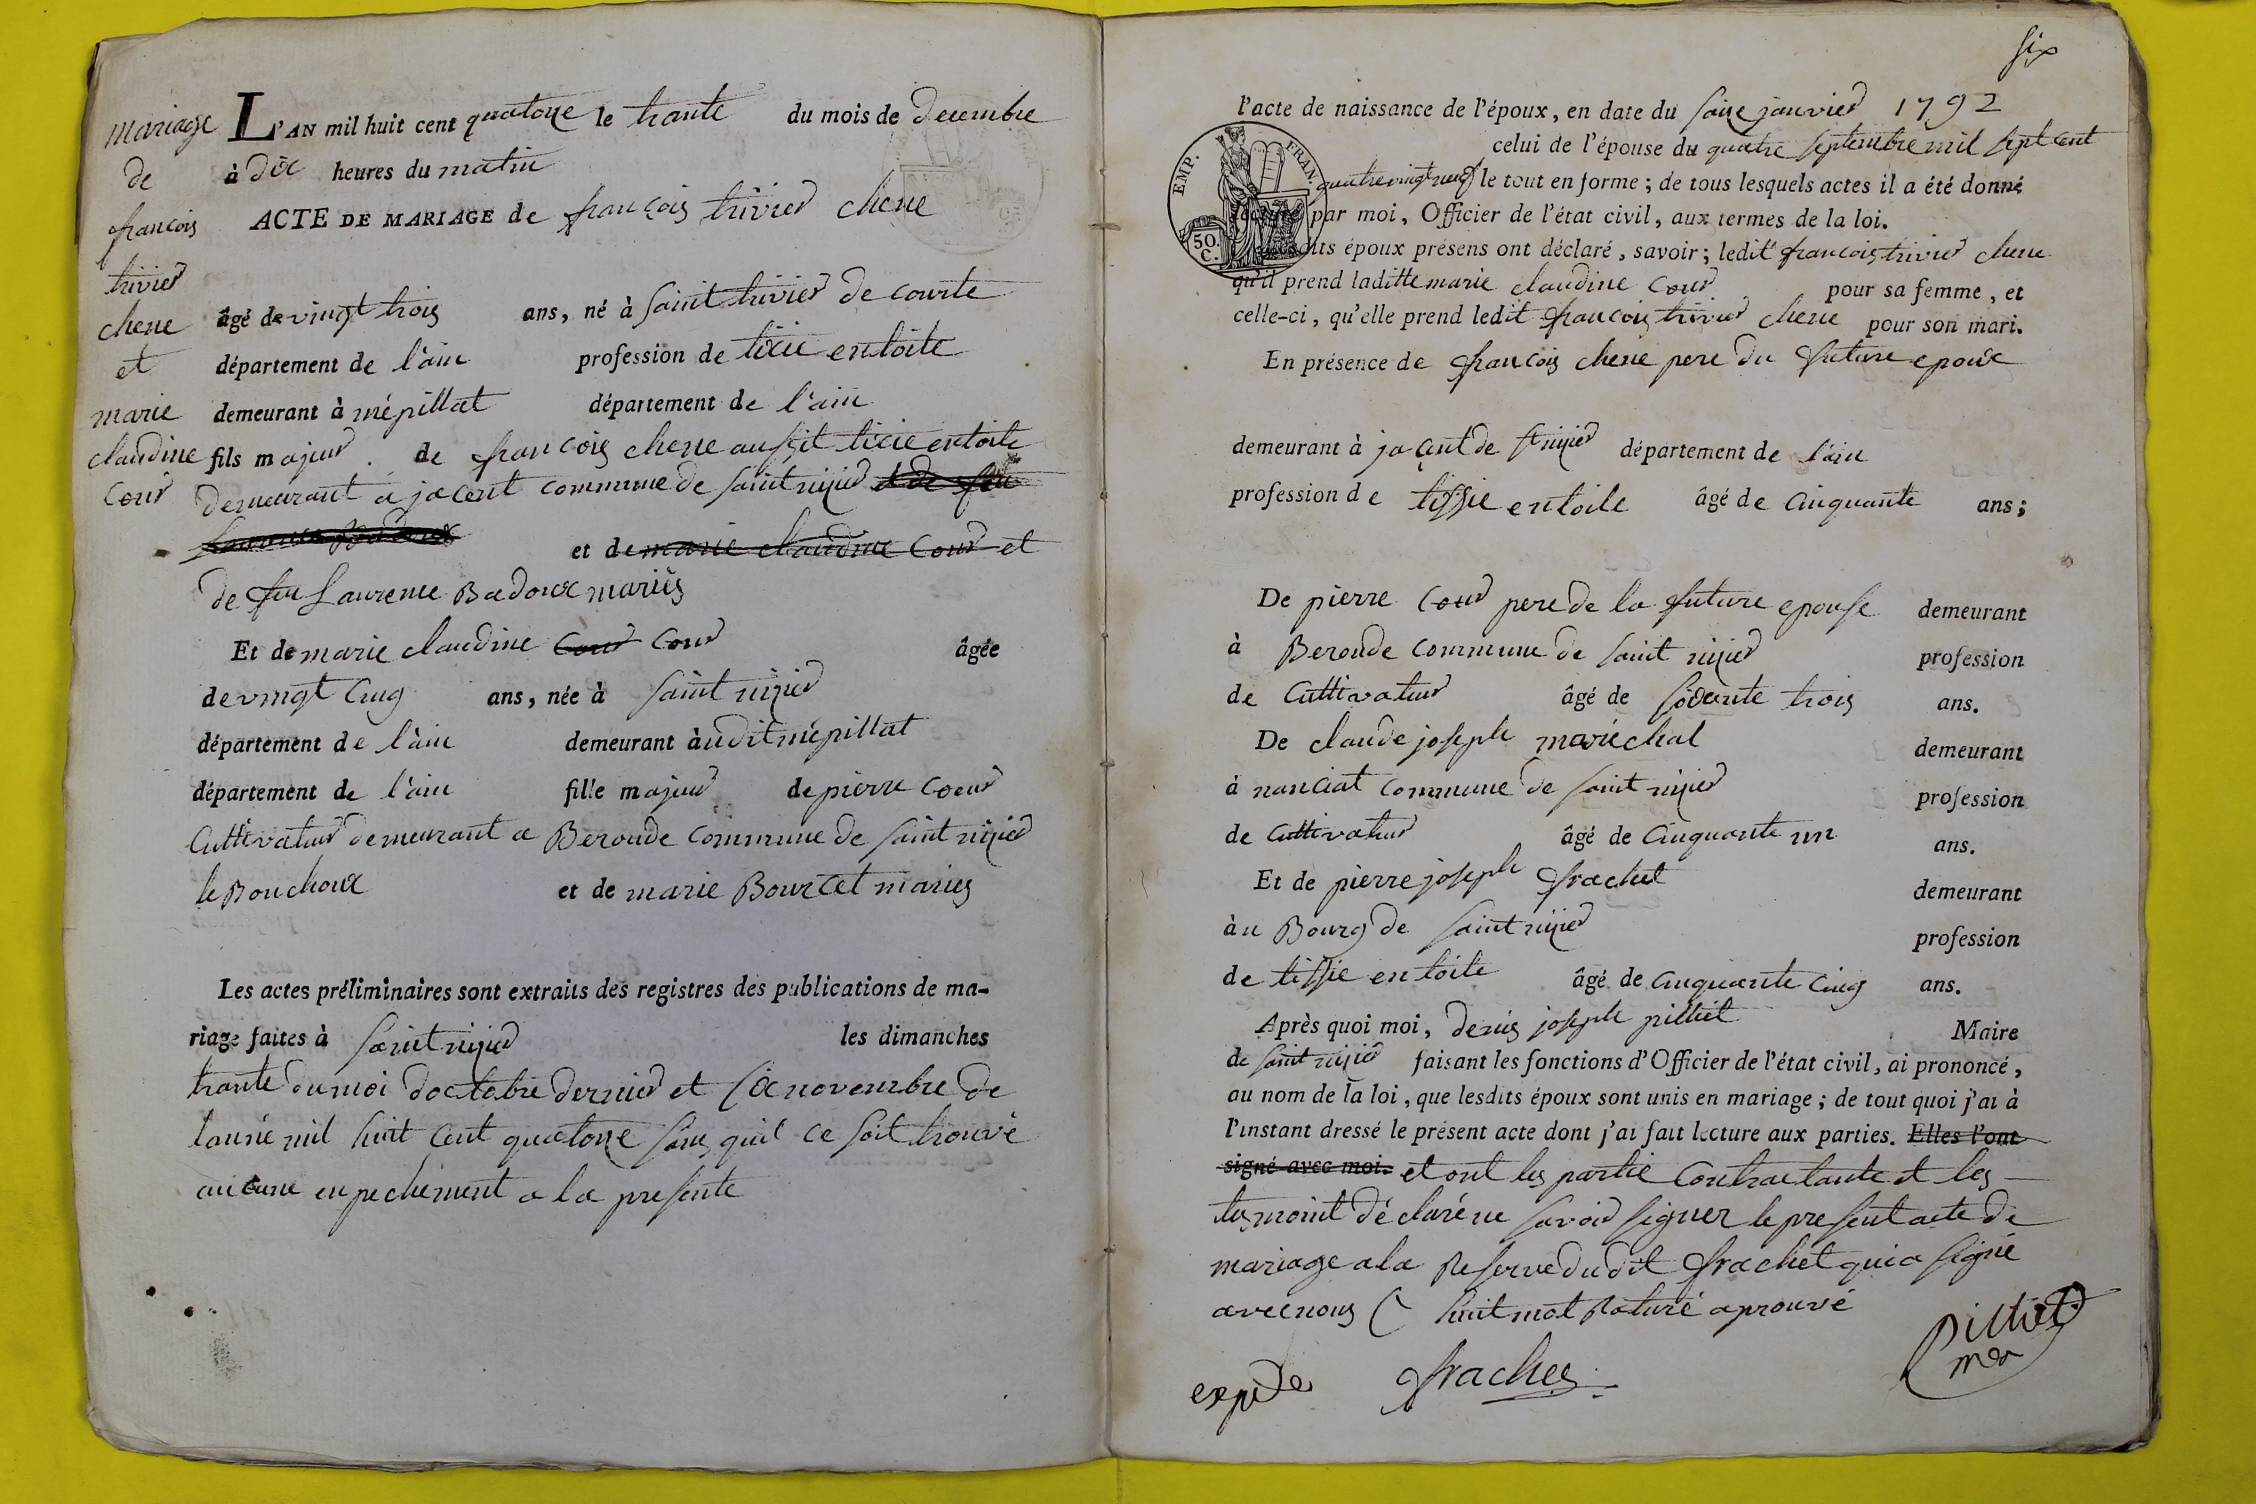 mariage
de
françois
trivier
chene
et
marie
claudine
Cour
L'AN mil huit cent quatorze le trante du mois de decembre
à dix heures du matin
ACTE DE MARIAGE de françois trivier chene
âgé de vingt trois ans, né à Saint trivier de courte
département de l'ain profession de tixie entoile
demeurant à mépillat département de l'ain
fils majeur. de françois chene aussit tixie entoile
demeurant a jacent commune de saint nizier et de feu
et de marie claudine Cour et
de feu Laurence Badoux mariés
Et de marie claudine Cour Cour âgée
de vingt Cinq ans, née à Saint nizier
département de l'ain demeurant àudit mépillat
département de l'ain fille majeur de pierre Coeur
Cultivateur demeurant a Beroude Commune de Saint nizier
le Bouchoux et de marie Bourcet mariés
Les actes préliminaires sont extraits des registres des publications de ma-
riage faites à Saint nizier les dimanches
trante du moi doctobre dernier et six novembre de
lanné mil huit Cent quatorze sans quil ce soit trouvé
aucune enpechement a la presente
six
l'acte de naissance de l'époux, en date du saize janvier 1792
celui de l'épouse du quatre septembre mil sept cent
EMP. FRAN.
50. C.
quatrevingt neuf le tout en forme; de tous lesquels actes il a été donné
lecture par moi, Officier de l'état civil, aux termes de la loi.
Lesdits époux présens ont déclaré, savoir; ledit françois trivier chene
qu'il prend laditte marie claudine Cour pour sa femme, et
celle-ci, qu'elle prend ledit françois trivier chene pour son mari.
En présence de françois chene pere du future epoux
demeurant à jacent de st nizier département de l'ain
profession de tissie entoile âgé de Cinquante ans;
De pierre Cour pere de la future epouse demeurant
à Beroude Commune de Saint nizier profession
de Cultivateur âgé de soixante trois ans.
De claude joseph maréchal demeurant
à nanciat Commune de Saint nizier profession
de Cultivateur âgé de Cinquante un ans.
Et de pierre joseph frachet demeurant
àu Bourg de Saint nizier profession
de tissie entoile âgé de Cinquante Cinq ans.
Après quoi moi, denis joseph pilliet Maire
de Saint nizier faisant les fonctions d'Officier de l'état civil, ai prononcé,
au nom de la loi, que lesdits époux sont unis en mariage; de tout quoi j'ai à
l'instant dressé le présent acte dont j'ai fait lecture aux parties. Elles l'ont
signé avec moi. et ont les partie Contractante et les
tesmoint déclaré ne savoir signer le present acte de
mariage a la Reserve dudit frachet qui a signé
avec nous huit mot Raturé aprouvé
Pilliet
mer
expde frachet